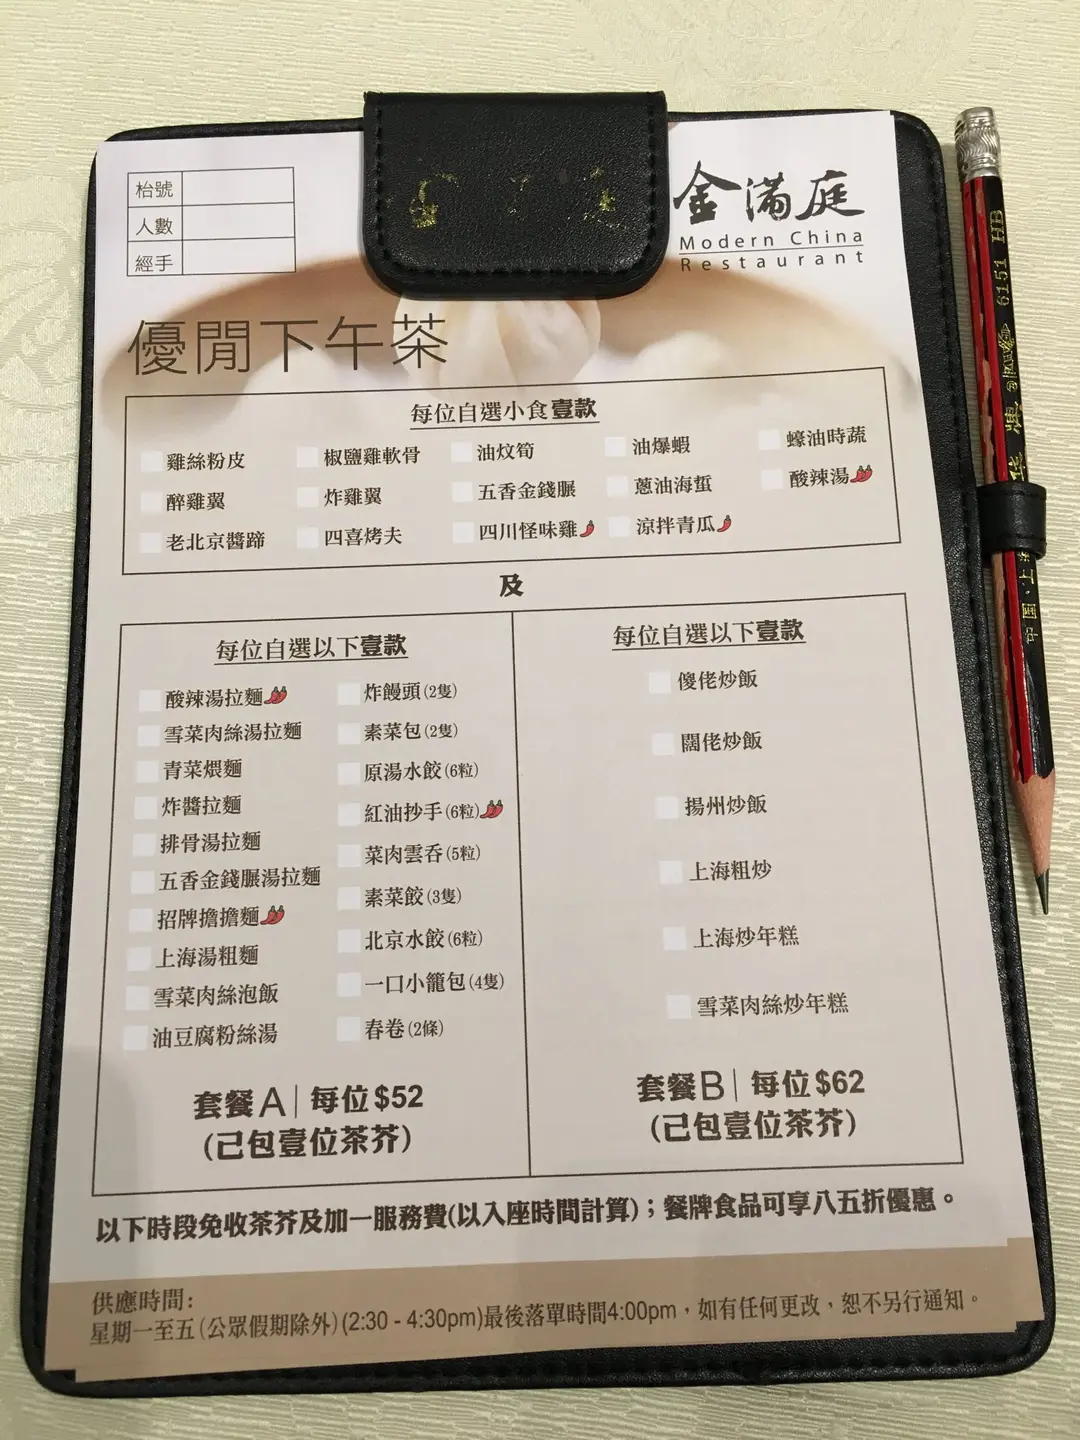 枱號
人數
經手
金滿庭
Modern China
Restaurant
優閒下午茶
每位自選小食壹款
雞絲粉皮 椒鹽雞軟骨 油炆筍 油爆蝦 蠔油時蔬
醉雞翼 炸雞翼 五香金錢𦟌 蔥油海蜇 酸辣湯
老北京醬蹄 四喜烤夫 四川怪味雞 涼拌青瓜
及
每位自選以下壹款
酸辣湯拉麵 炸饅頭(2隻)
雪菜肉絲湯拉麵 素菜包(2隻)
青菜煨麵 原湯水餃(6粒)
炸醬拉麵 紅油抄手(6粒)
排骨湯拉麵 菜肉雲吞(5粒)
五香金錢𦟌湯拉麵 素菜餃(3隻)
招牌擔擔麵 北京水餃(6粒)
上海湯粗麵 一口小籠包(4隻)
雪菜肉絲泡飯 春卷(2條)
油豆腐粉絲湯
套餐A| 每位$52
(已包壹位茶芥)
每位自選以下壹款
傻佬炒飯
闊佬炒飯
揚州炒飯
上海粗炒
上海炒年糕
雪菜肉絲炒年糕
套餐B| 每位$62
(已包壹位茶芥)
以下時段免收茶芥及加一服務費(以入座時間計算)；餐牌食品可享八五折優惠。
供應時間:
星期一至五(公眾假期除外)(2:30 - 4:30pm)最後落單時間4:00pm，如有任何更改，恕不另行通知。
6151 HB
中国.上海